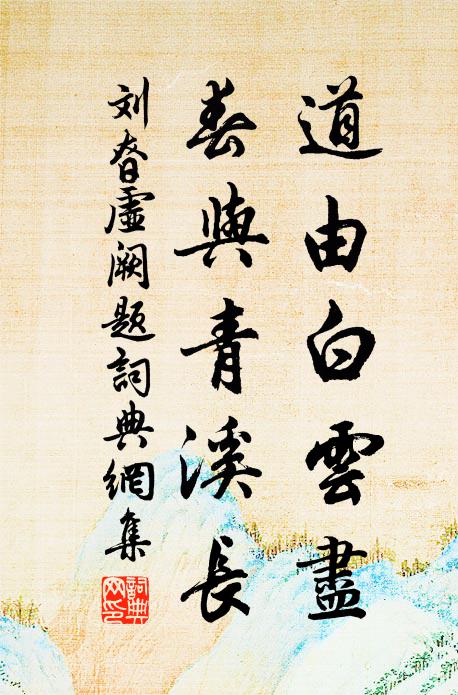 道由白雲盡
春與青溪長
刘昚虛阙題詞典網集
詞典网印